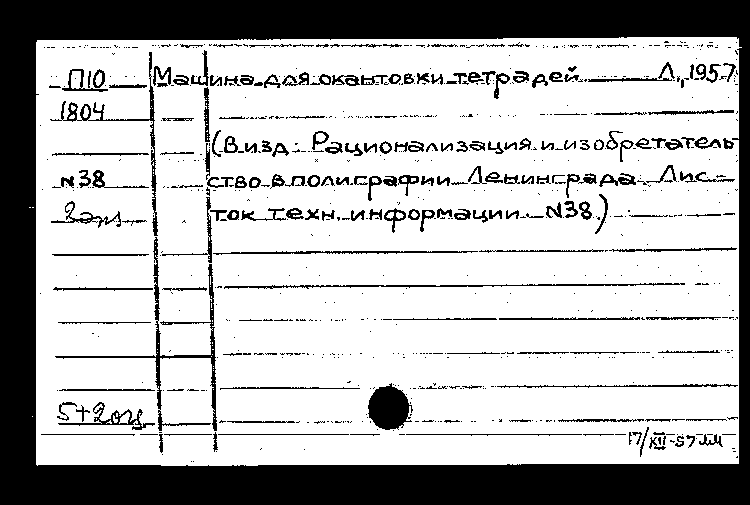 П10 Машина для окантовки тетрадей Л, 1957
1804
(В изд: Рационализация и изобретатель
N38 ство в полиграфии Ленинграда. Лис-
2экз ток техн. информации. N38.)
5+2
17/XII-57